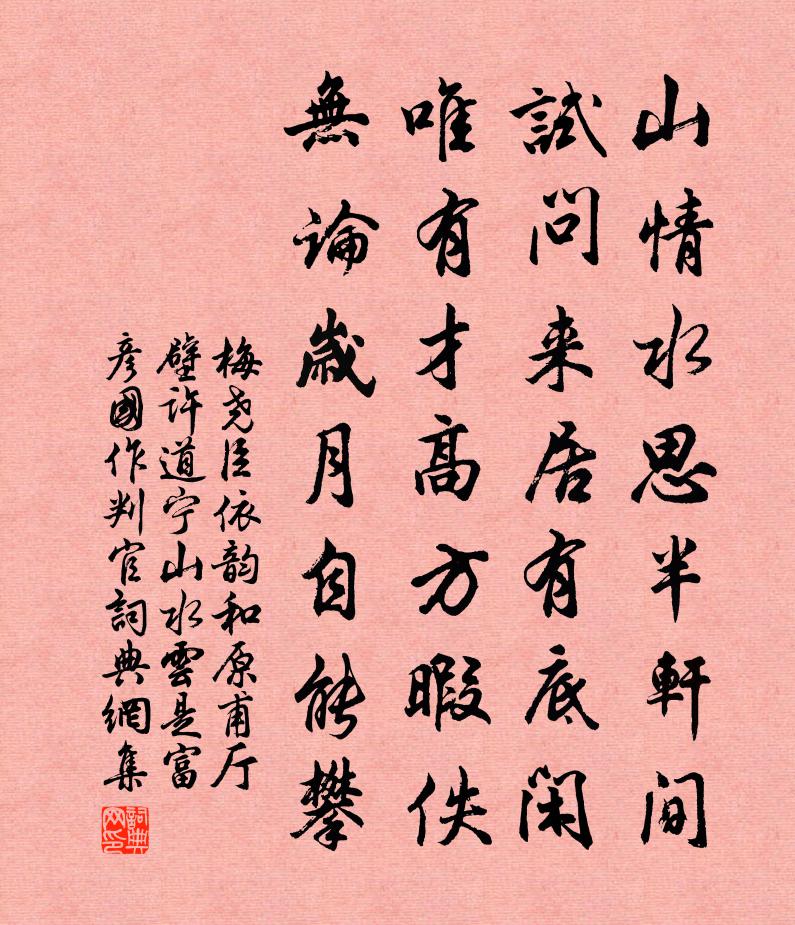 山情水思半軒間
試問来居有底閑
唯有才高方暇佚
無論歲月自能攀
梅堯臣依韵和原甫厅
壁許道宁山水雲是富
彦國作判官詞典網集
詞典网印